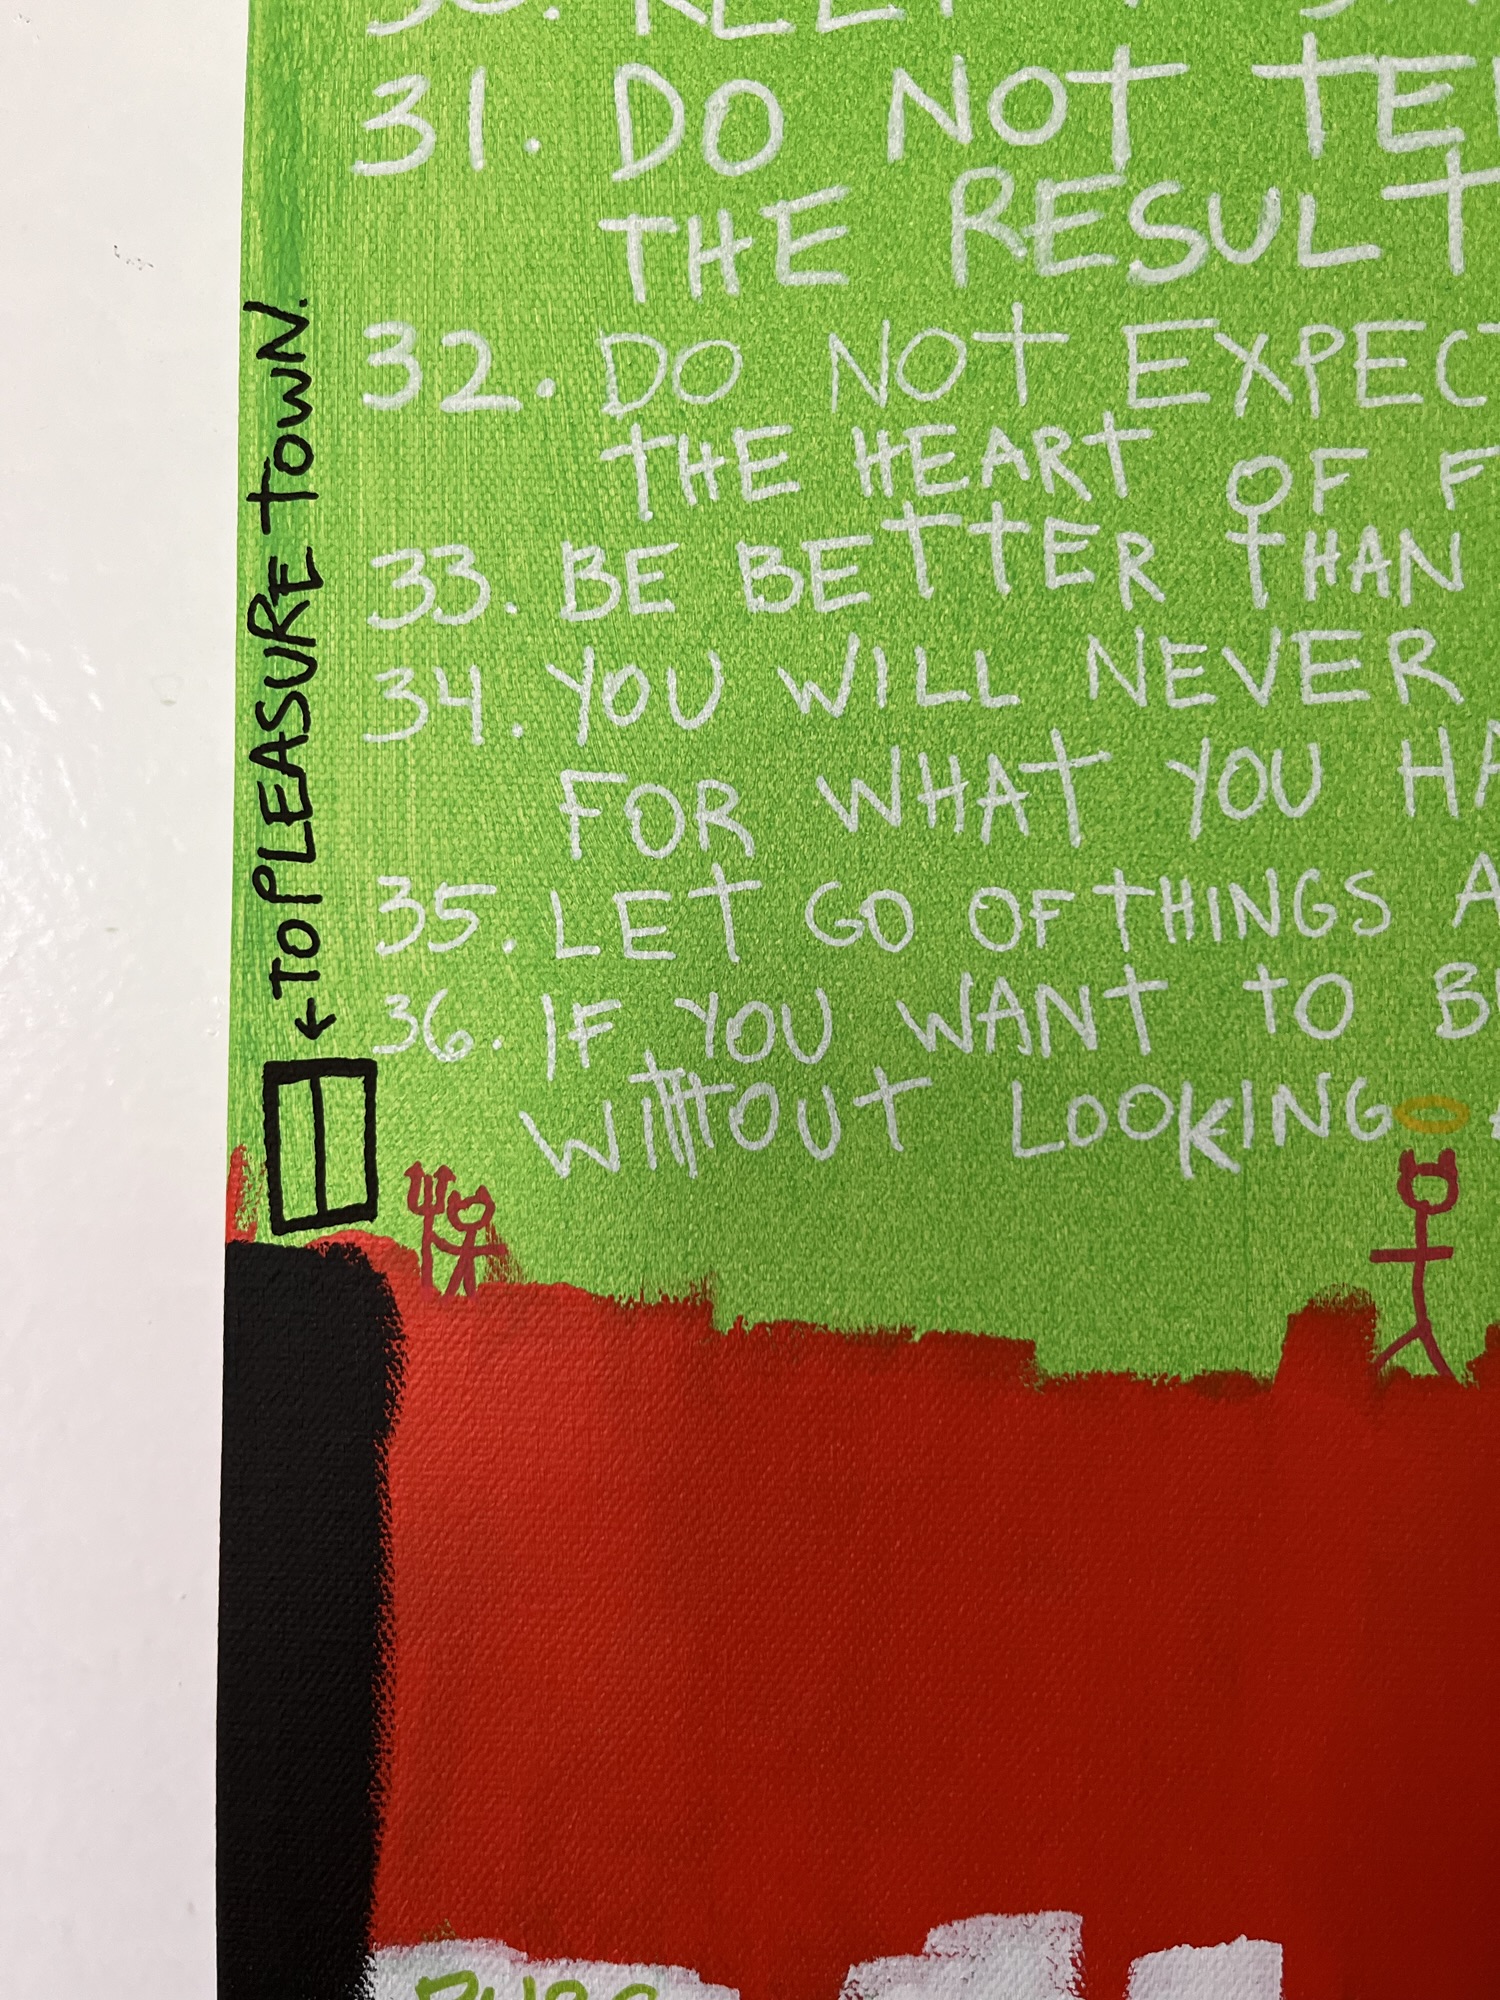 31. DO NOT
THE RESULT
32. DO NOT EXPECT
THE HEART OF
33. BE BETTER THAN
34. YOU WILL NEVER
FOR WHAT YOU
35. LET GO OF THINGS
36. IF YOU WANT TO
WITHOUT LOOKING
← TO PLEASURE TOWN.